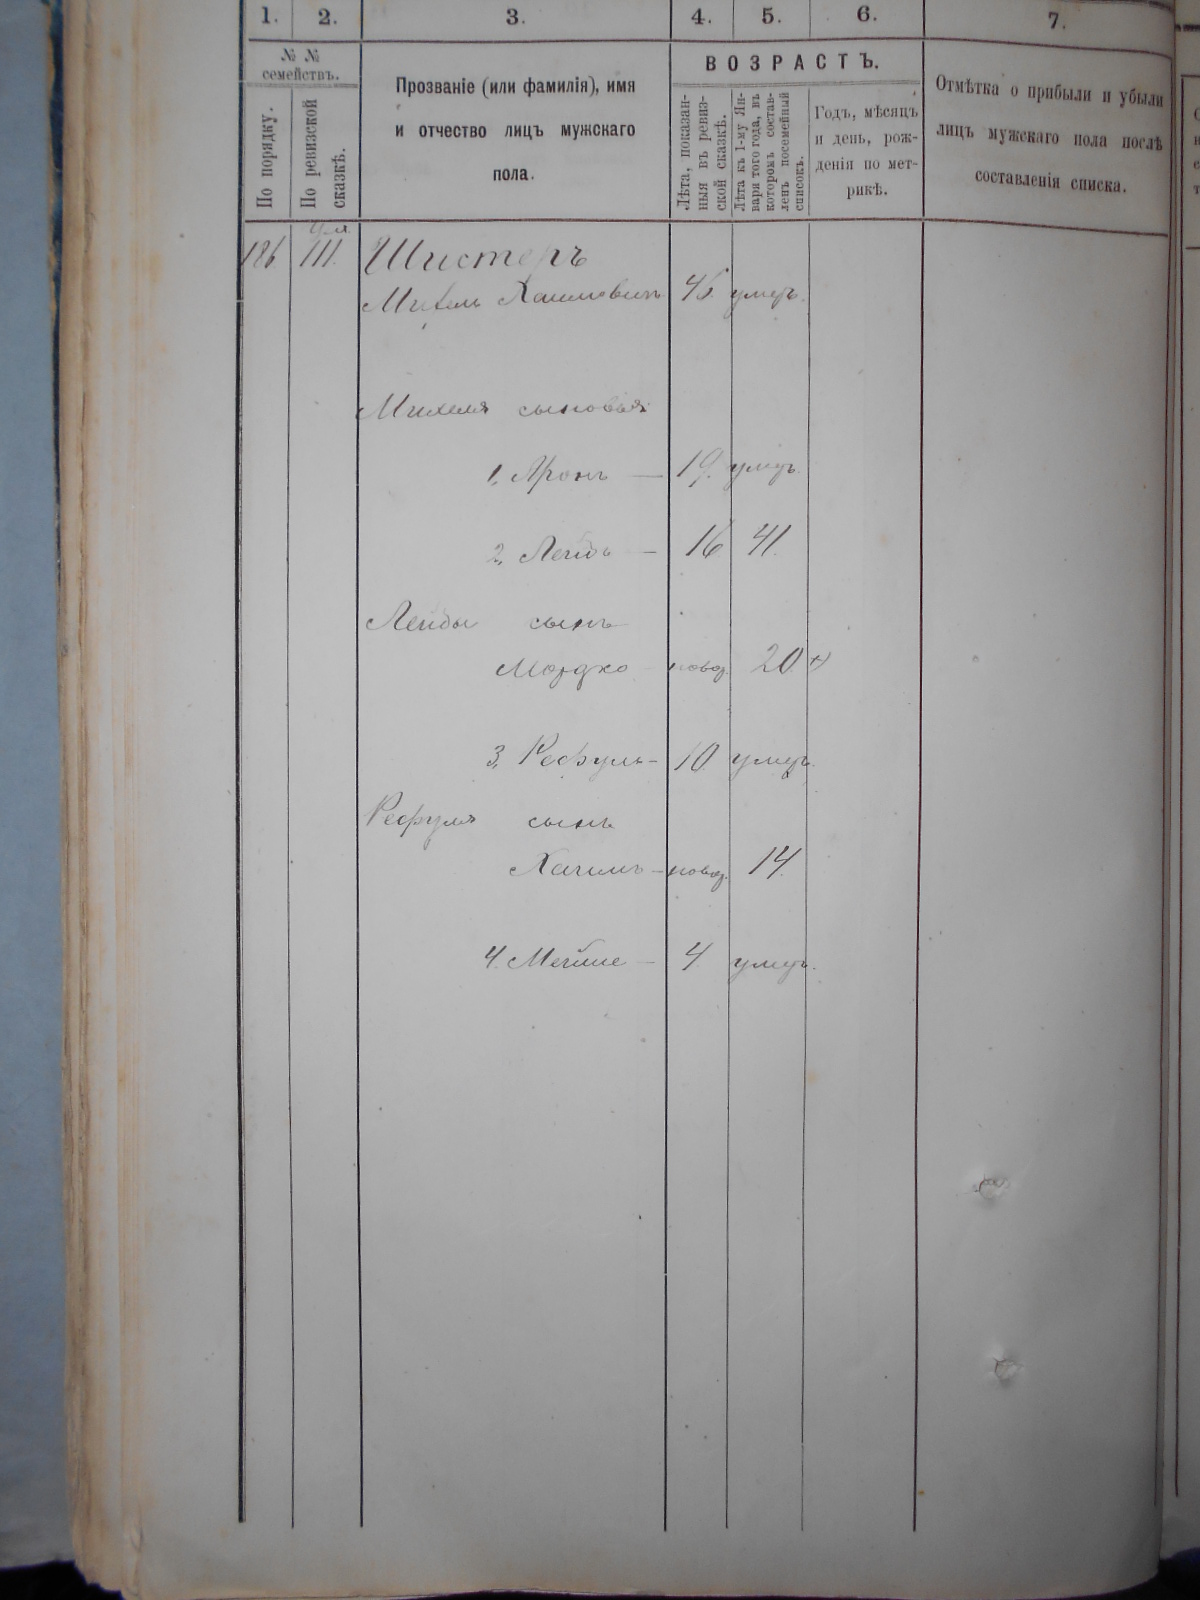 1. 2. 3. 4. 5. 6. 7.
№ №
семействъ.
По порядку.
По ревизской
сказкѣ.
Прозваніе (или фамилія), имя
и отчество лицъ мужскаго
пола.
ВОЗРАСТЪ.
Лѣта, показан-
ныя въ ревиз-
ской сказкѣ.
Лѣта къ 1-му Ян-
варя того года, въ
которомъ состав-
ленъ посемейный
списокъ.
Годъ, мѣсяцъ
и день, рож-
денія по мет-
рикѣ.
Отмѣтка о прибыли и убыли
лицъ мужскаго пола послѣ
составленія списка.
186 111. Шистеръ
Михель Хаимовичъ 46 умеръ.
Михеля сыновья
1, Аронъ — 19. умеръ.
2, Лейба — 16 41.
Лейбы сынъ
Мордко — новор. 20
3, Рефуль — 10 умеръ.
Рефуля сынъ
Хаимъ — новор. 14.
4. Мейше — 4 умеръ.